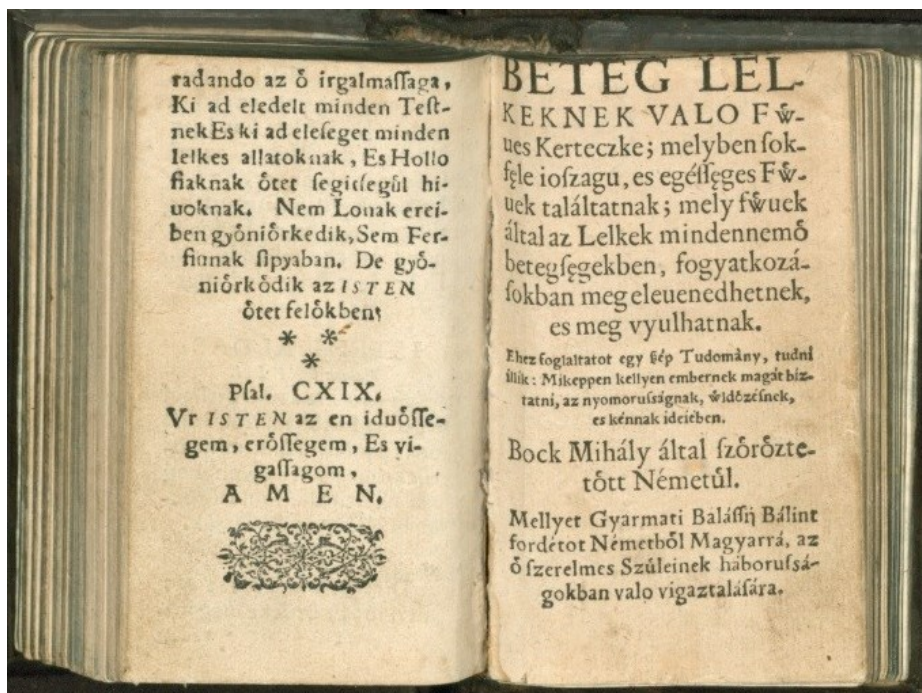 radando az ő irgalmaſſaga,
Ki ad eledelt minden Teſt-
nek Es ki ad eleſeget minden
lelkes allatoknak, Es Hollo
fiaknak őtet ſegitſegůl hi-
uoknak. Nem Louak erei-
ben győniőrkedik, Sem Fer-
fiunak ſipyaban. De győ-
niőrkődik az ISTEN
őtet felőkben;
* *
*
Pſal. CXIX.
Vr ISTEN az en iduőſſe-
gem, erőſſegem, Es vi-
gaſſagom,
AMEN.
BETEG LEL-
KEKNEK VALO Fẘ-
ues Kerteczke; melyben ſok-
fęle ioſzagu, es egéſſęges Fẘ-
uek találtatnak; mely fẘuek
által az Lelkek mindennemő
betegſęgekben, fogyatkozá-
ſokban meg eleuenedhetnek,
es meg vyulhatnak.
Ehez foglaltatot egy ſép Tudomány, tudni
illik: Mikeppen kellyen embernek magát biz-
tatni, az nyomoruſságnak, ẘldőzéſnek,
es kénnak ideieben.
Bock Mihály által ſzőrőzte-
tőtt Németůl.
Mellyet Gyarmati Baláſſÿ Bálint
fordétot Németből Magyarrá, az
ő ſzerelmes Szůleinek háboruſsá-
gokban valo vigaztaláſára.